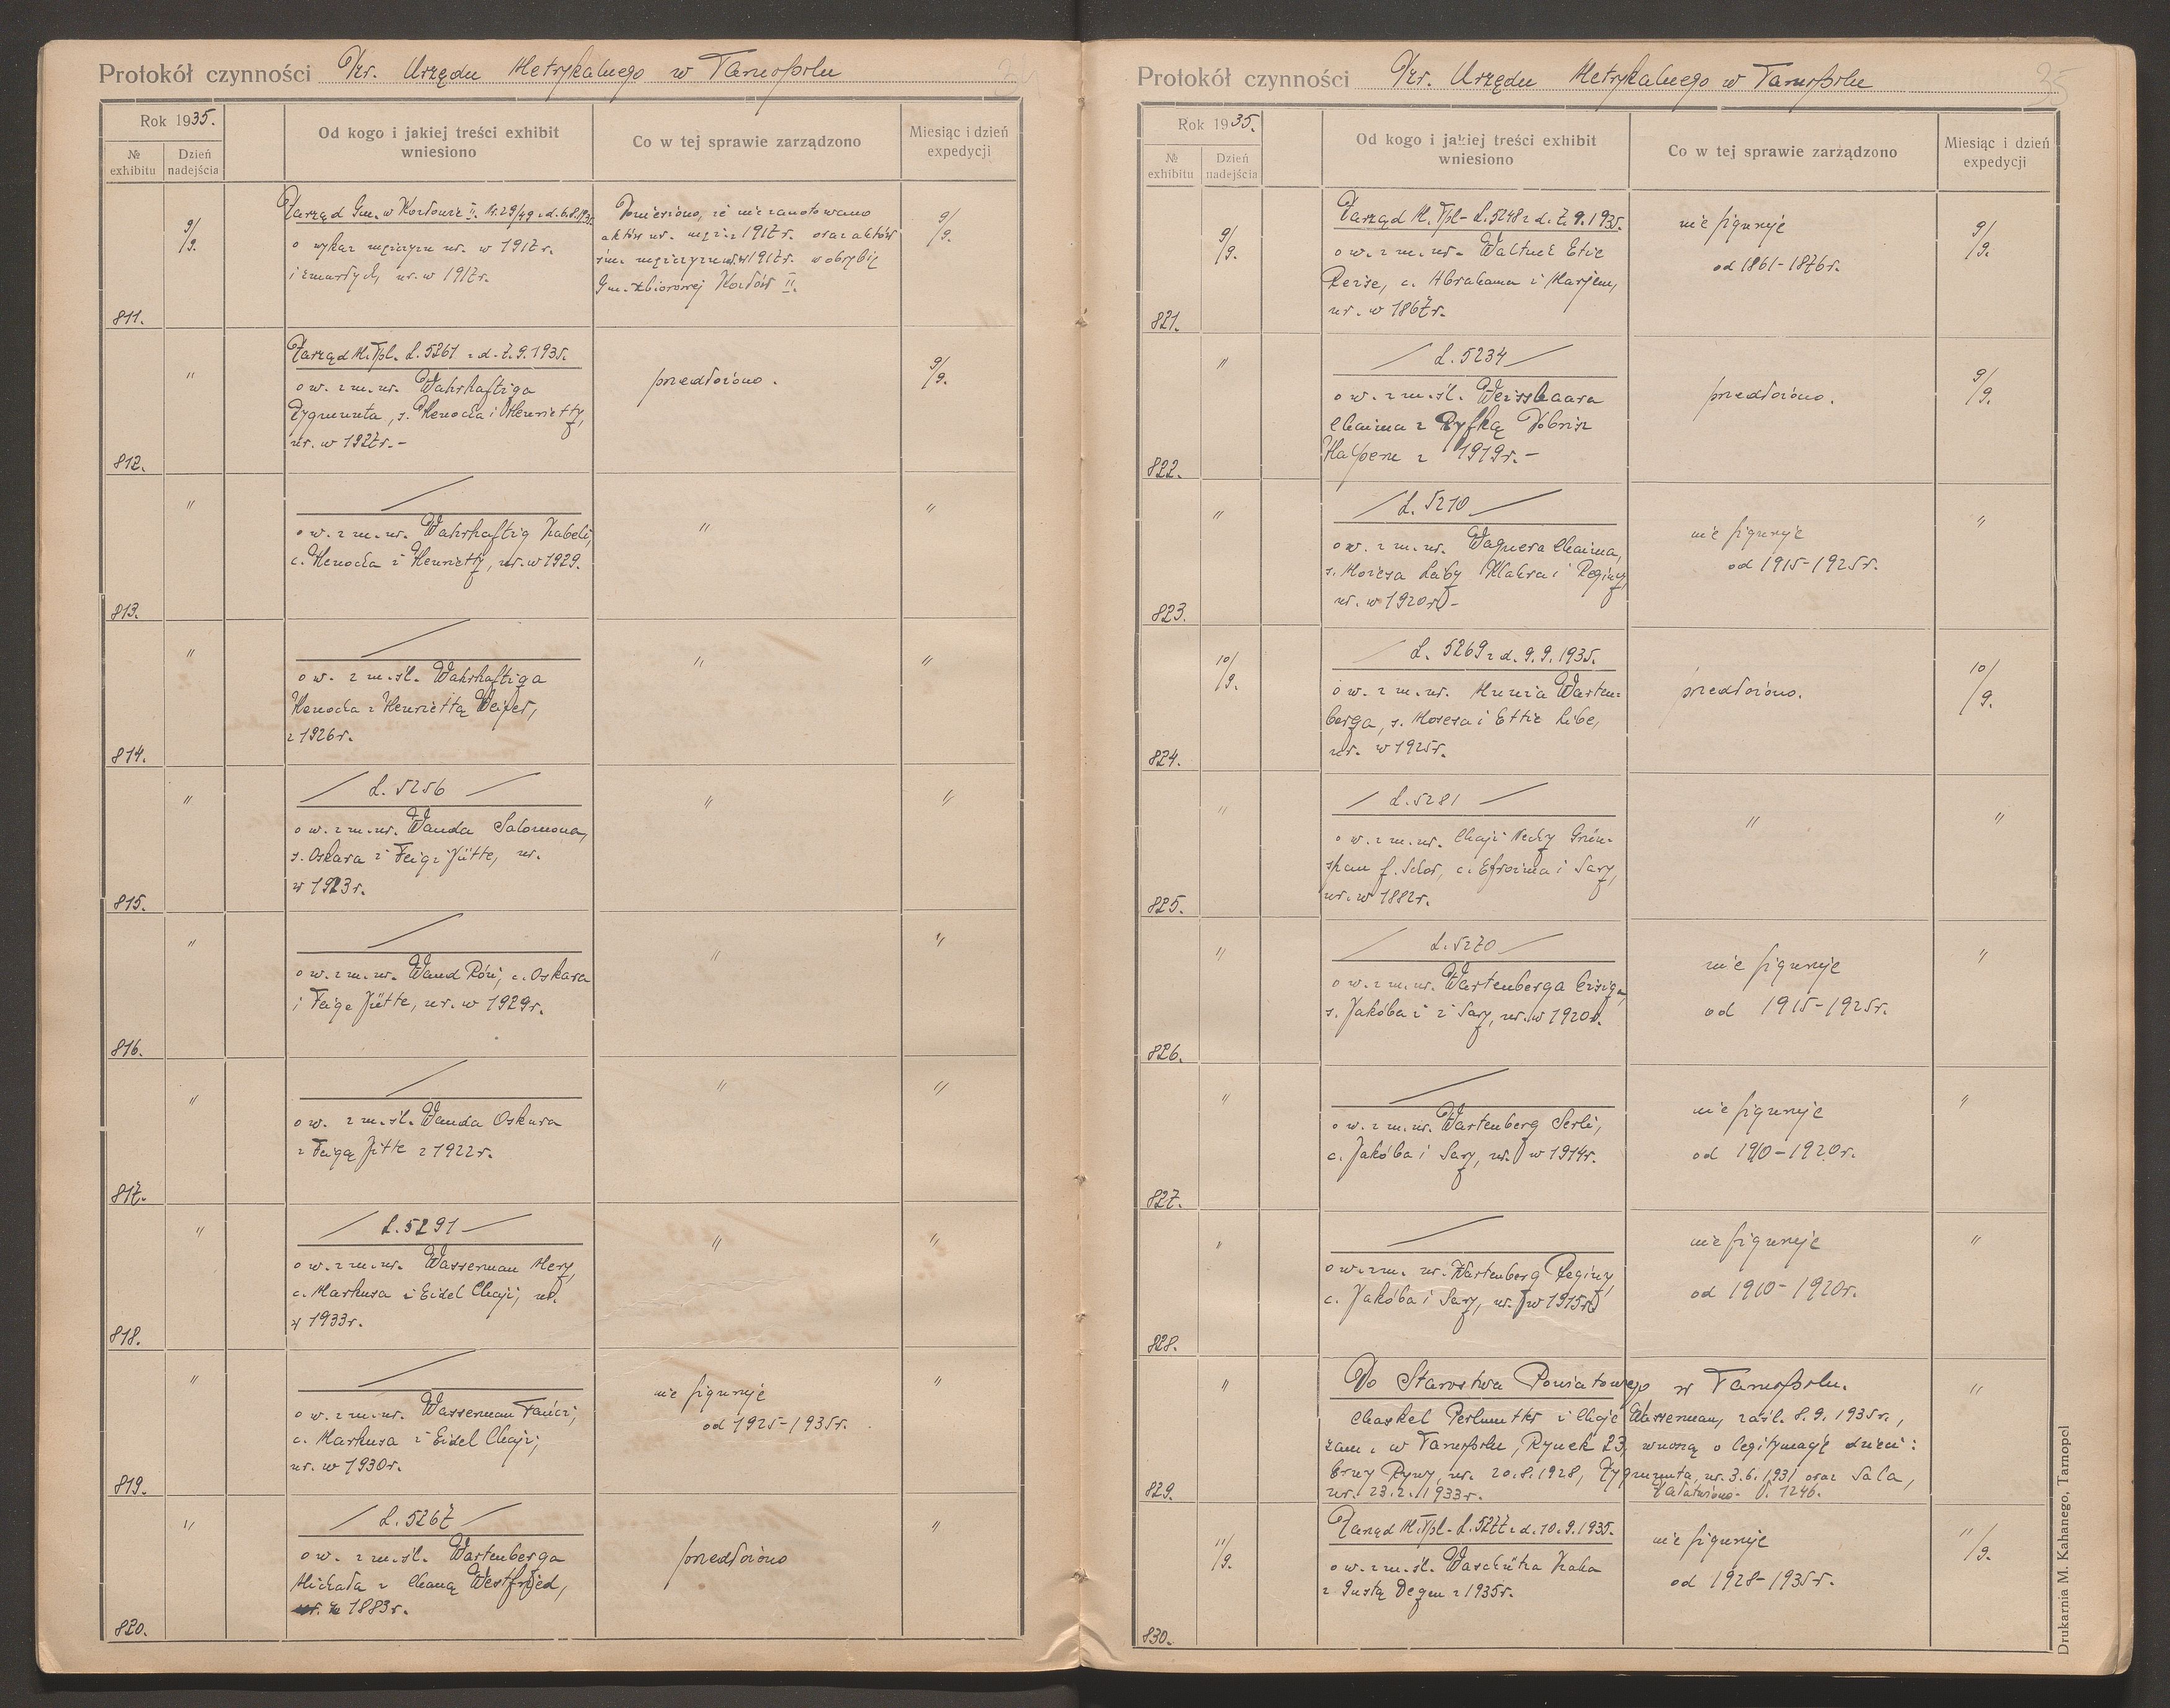 Protokół czynności Izr. Urzędu Metrykalnego w Tarnopolu
Rok 1935.
№ exhibitu
Dzień nadejścia
Od kogo i jakiej treści exhibit
wniesiono
Co w tej sprawie zarządzono
Miesiąc i dzień
expedycji
811.
9/9.
Zarząd Gm. w Kozłowie II. Nr. 29/49 z d. 6.8.1935.
o wykaz mężczyzn ur. w 1917r.
i zmarłych, ur. w 1917r.
Doniesiono, że nie zanotowano
aktów ur. mężcz. z 1917r. oraz aktów
zm. mężczyzn ur. w 1917r. w obrębie
Gm. zbiorowej Kozłów II.
9/9.
812.
"
Zarząd M. Tpl. L. 5261 z d. 7.9.1935.
o w. z m. ur. Wahrhaftiga
Zygmunta, s. Henocha i Henrietty,
ur. w 1927r.-
przedłożono.
9/9.
813.
"
o w. z m. ur. Wahrhaftig Izabeli,
c. Henocha i Henrietty, ur. w 1929.
"
"
814.
"
o w. z m. śl. Wahrhaftiga
Henocha z Henriettą Weifer,
z 1926r.
"
"
815.
"
L. 5256
o w. z m. ur. Wanda Salomona,
s. Oskara i Feigi Jütte, ur.
w 1923r.
"
"
816.
"
o w. z m. ur. Wand Róży, c. Oskara
i Feige Jütte, ur. w 1929r.
"
"
817.
"
o w. z m. śl. Wanda Oskara
z Feigą Jitte z 1922r.
"
"
818.
"
L. 5291
o w. z m. ur. Wasserman Mery,
c. Markusa i Eidel Chaji, ur.
w 1933r.
"
"
819.
"
o w. z m. ur. Wasserman Fańci,
c. Markusa i Eidel Chaji,
ur. w 1930r.
nie figuruje
od 1925-1935r.
"
820.
"
L. 5267
o w. z m. śl. Wartenberga
Michała z Chaną Westfried,
z 1883r.
przedłożono
"
Protokół czynności Izr. Urzędu Metrykalnego w Tarnopolu
35
Rok 1935.
№ exhibitu
Dzień nadejścia
Od kogo i jakiej treści exhibit
wniesiono
Co w tej sprawie zarządzono
Miesiąc i dzień
expedycji
821.
9/9.
Zarząd M. Tpl- L. 5248 z d. 7.9.1935.
o w. z m. ur. Waltuch Etie
Reise, c. Abrahama i Marjem,
ur. w 1867r.
nie figuruje
od 1861-1876r.
9/9.
822.
"
L. 5234
o w. z m. śl. Weisshaara
Chaima z Ryfką Dobrisz
Halpern z 1919r.-
przedłożono.
9/9.
823.
"
L. 5210
o w. z m. ur. Wagnera Chaima,
s. Mojżesa Laiby Klahra i Reginy,
ur. w 1920r.-
nie figuruje
od 1915-1925r.
"
824.
10/9.
L. 5269 z d. 9.9.1935.
o w. z m. ur. Munia Warten-
berga, s. Mozesa i Ettie Libe,
ur. w 1925r.
przedłożono.
10/9.
825.
"
L. 5281
o w. z m. ur. Chaji Nechy Grün-
span f. Schor, c. Efroima i Sary,
ur. w 1882r.
"
"
826.
"
L. 5270
o w. z m. ur. Wartenberga Eisiga,
s. Jakóba i Sary, ur. w 1920r.
nie figuruje
od 1915-1925r.
"
827.
"
o w. z m. ur. Wartenberg Serli,
c. Jakóba i Sary, ur. w 1914r.
nie figuruje
od 1910-1920r.
"
828.
"
o w. z m. ur. Wartenberg Reginy,
c. Jakóba i Sary, ur. w 1915r.
nie figuruje
od 1910-1920r.
"
829.
"
Do Starostwa Powiatowego w Tarnopolu.
Chaskel Perlmutter i Chaje Wasserman, zaśl. 8.9.1935r.,
zam. w Tarnopolu, Rynek 23, wnoszą o legitymację dzieci:
Erny Rywy, ur. 20.8.1928, Zygmunta, ur. 3.6.1931 oraz Sala,
ur. 23.2.1933r. Załatwiono- V. 1246.
"
830.
11/9.
Zarząd M. Tpl- L. 5277 z d. 10.9.1935.
o w. z m. śl. Waschütza Izaka
z Gustą Degen z 1935r.
nie figuruje
od 1928-1935r.
11/9.
Drukarnia M. Kahanego, Tarnopol